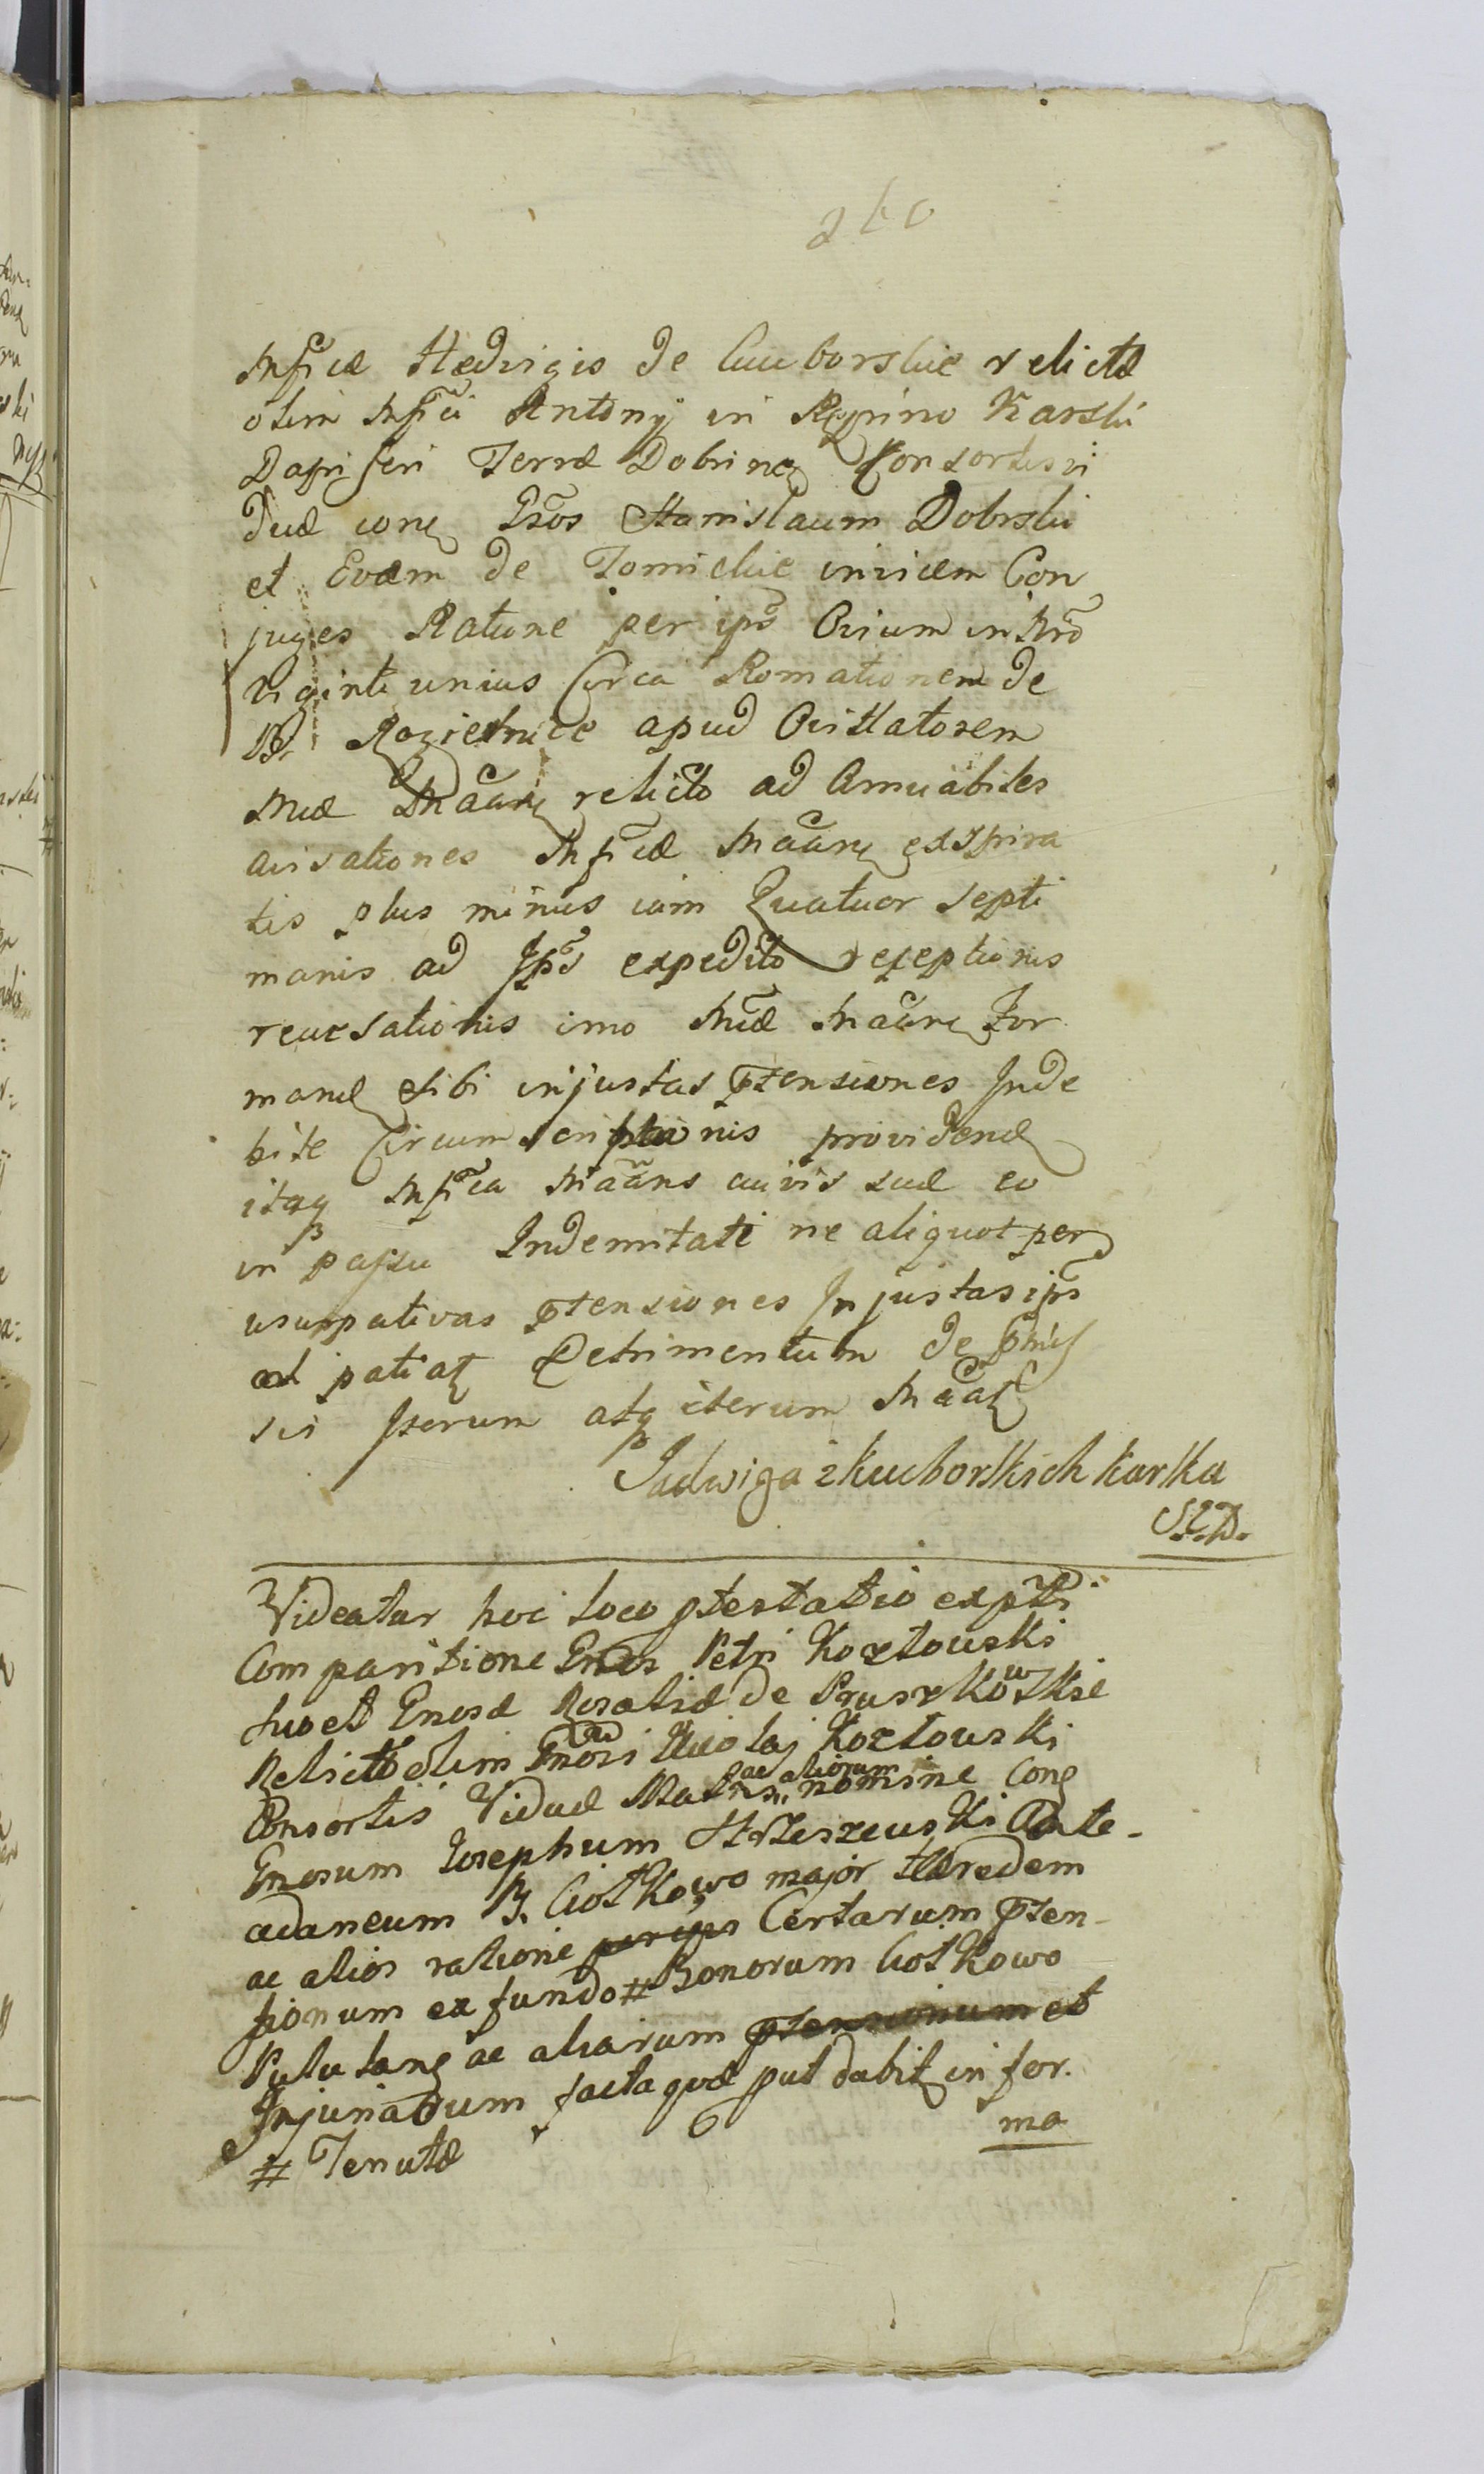 260
Mfície Hedvigis de Cuuborskie relictæ
olim Mfici Antonij in Rypino Karski
Dapiferi Terræ Dobrinen Consortis vi
duæ conq Gsos Stanislaum Dobrski
et Evam de Tomickie invicem Con
juges Ratione per ips Ovium in Nro
viginti unius Circa Romationem de
Br Rogietnice apud Ovillatorem
Mcæ Maãne relicto ad Amicabiles
avisationes Mficæ Maãne exspira
tis plus minus iam Quatuor septi
manis ad Ips expedito receptionis
recusationis imo Mcæ Maãne For
mand sibi injustas ptensiones Inde
bite Circumscriptionis providend
itaq Mfica Maãns cuivis suæ eo
in passu Indemnitati ne aliquot per
usurpativas ptensiones Injustas ips
od patiat Detrimentum de pmis
sis Iterum atq iterum Maãt
Jadwiga z kuuborskich karska
S.Z.D.
Videatur hoc loco ptestatio expti
Comparitione Gnosi Petri Kozłowski
suo et Gnosæ Rosaliæ de Pruszkowskie
Relictæ olim Gnosi Nicolaj Kozłowski
Consortis Viduæ Matris ac aliorum nomine Conq
Gnosum Josephum Strzeszewski Ante-
adaneum B. Ciotkowo major Hæredem
ac alios ratione per ips Certarum pten-
sionum ex fundo # Bonorum Ciotkowo
Putulang ac aliarum ptensionum et
Injuriarum facta quæ put dabit in for.
ma
# Tenutæ